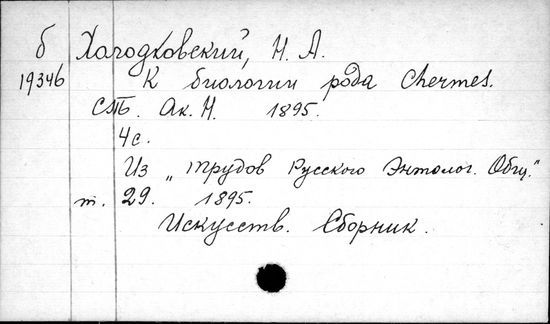 б Холодковский, Н. А.
19346 К биологии рода Chermes.
СПБ. Ак. Н. 1895.
4 с.
Из „Трудов Русского Энтомолог. Общ."
т. 29. 1895.
Искусств. Сборник.